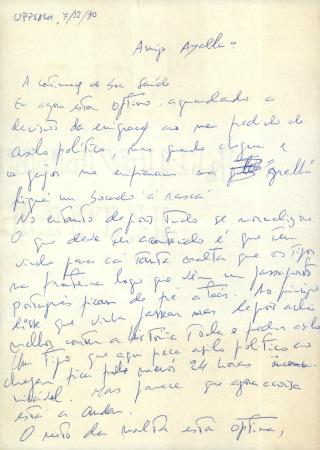 UPPSALA, 7/12/70
Amigo Ayalla:
A começar de boa saúde.
Eu agora estou optimo, aguardado a
decisão da emigração ao meu pedido de
asilo político, mas quando cheguei e
os gajos me enfiaram na
fiquei um bocado à rasca.
No entanto depois tudo se normalizou
O que deve ter acontecido é que tem
vindo para cá tanta malta que os tipos
na fronteira logo que vêm um passaporte
português ficam de pé a trás. Ao principio
disse que vinha passear mas depois achei
melhor contar a história toda e pedir asilo
Um tipo que aqui peça asilo político ao
chegar fica pelo menos 24 horas
Mas parece que agora a coisa
está a andar.
O resto da malta está optima,